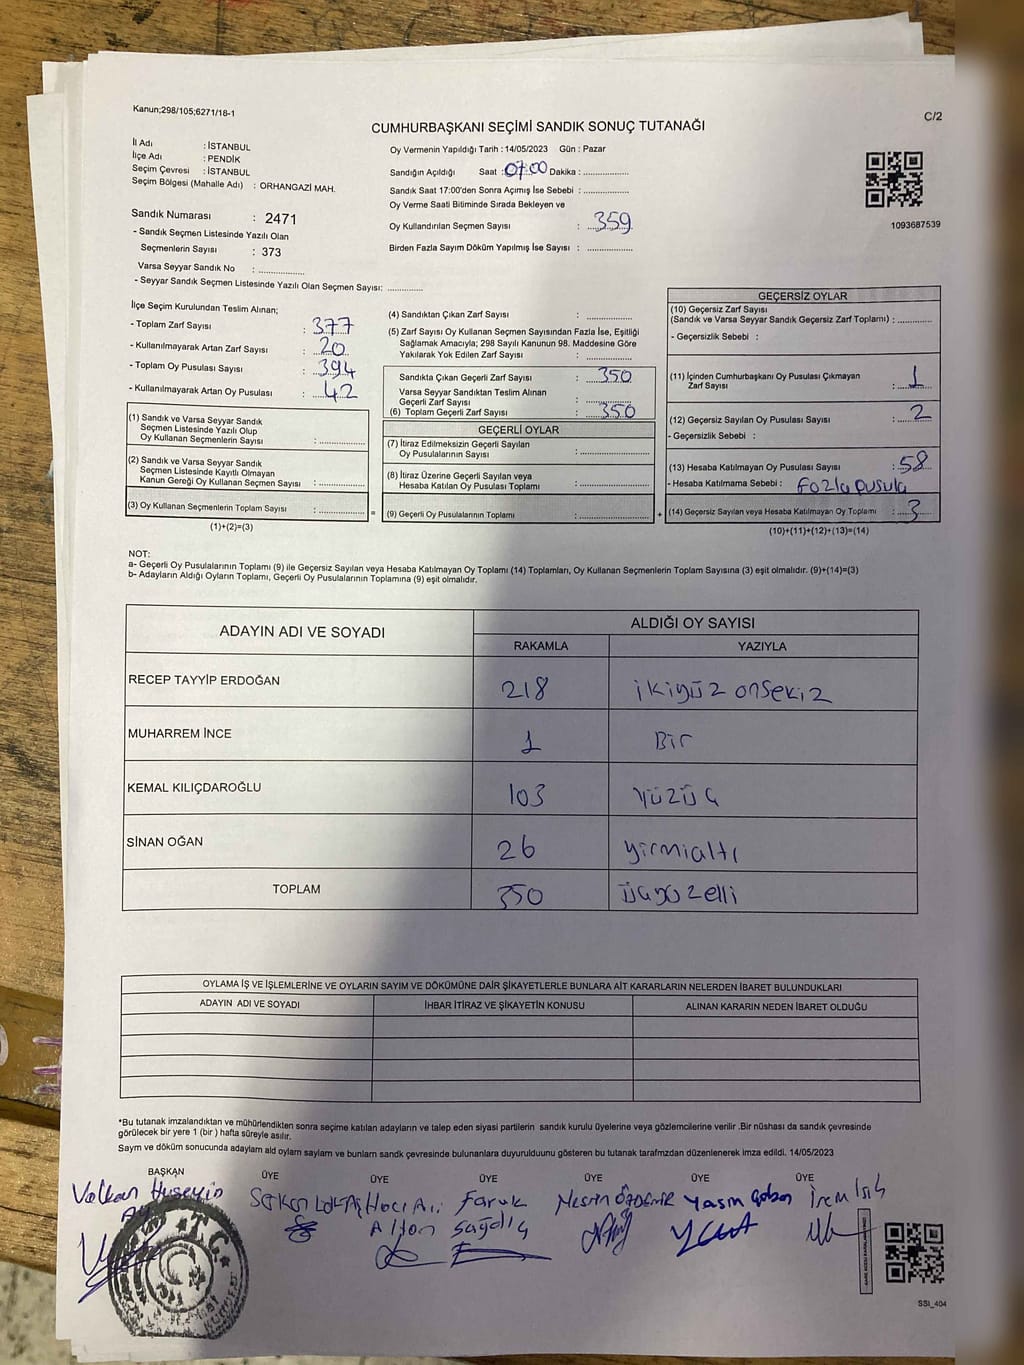 Kanun;298/105;6271/18-1
C/2
CUMHURBAŞKANI SEÇİMİ SANDIK SONUÇ TUTANAĞI
İl Adı : İSTANBUL
İlçe Adı : PENDİK
Seçim Çevresi : İSTANBUL
Seçim Bölgesi (Mahalle Adı) : ORHANGAZİ MAH.
Sandık Numarası : 2471
- Sandık Seçmen Listesinde Yazılı Olan
Seçmenlerin Sayısı : 373
Varsa Seyyar Sandık No : ..............
- Seyyar Sandık Seçmen Listesinde Yazılı Olan Seçmen Sayısı: ............
Oy Vermenin Yapıldığı Tarih : 14/05/2023 Gün : Pazar
Sandığın Açıldığı Saat : 07:00 Dakika : ..............
Sandık Saat 17:00'den Sonra Açımış İse Sebebi : ..............
Oy Verme Saati Bitiminde Sırada Bekleyen ve
Oy Kullandırılan Seçmen Sayısı : 359
Birden Fazla Sayım Döküm Yapılmış İse Sayısı : ..............
1093687539
İlçe Seçim Kurulundan Teslim Alınan;
- Toplam Zarf Sayısı : 377
- Kullanılmayarak Artan Zarf Sayısı : 20
- Toplam Oy Pusulası Sayısı : 394
- Kullanılmayarak Artan Oy Pusulası : 42
(1) Sandık ve Varsa Seyyar Sandık
Seçmen Listesinde Yazılı Olup
Oy Kullanan Seçmenlerin Sayısı : ..............
(2) Sandık ve Varsa Seyyar Sandık
Seçmen Listesinde Kayıtlı Olmayan
Kanun Gereği Oy Kullanan Seçmen Sayısı : ..............
(3) Oy Kullanan Seçmenlerin Toplam Sayısı : .............. =
(1)+(2)=(3)
(4) Sandıktan Çıkan Zarf Sayısı : ..............
(5) Zarf Sayısı Oy Kullanan Seçmen Sayısından Fazla İse, Eşitliği
Sağlamak Amacıyla; 298 Sayılı Kanunun 98. Maddesine Göre
Yakılarak Yok Edilen Zarf Sayısı : ..............
Sandıkta Çıkan Geçerli Zarf Sayısı : 350
Varsa Seyyar Sandıktan Teslim Alınan
Geçerli Zarf Sayısı : ..............
(6) Toplam Geçerli Zarf Sayısı : 350
GEÇERLİ OYLAR
(7) İtiraz Edilmeksizin Geçerli Sayılan
Oy Pusulalarının Sayısı : ..............
(8) İtiraz Üzerine Geçerli Sayılan veya
Hesaba Katılan Oy Pusulası Toplamı : ..............
(9) Geçerli Oy Pusulalarının Toplamı : .............. +
GEÇERSİZ OYLAR
(10) Geçersiz Zarf Sayısı
(Sandık ve Varsa Seyyar Sandık Geçersiz Zarf Toplamı) : ............
- Geçersizlik Sebebi :
(11) İçinden Cumhurbaşkanı Oy Pusulası Çıkmayan
Zarf Sayısı : 1
(12) Geçersiz Sayılan Oy Pusulası Sayısı : 2
- Geçersizlik Sebebi :
(13) Hesaba Katılmayan Oy Pusulası Sayısı : 58
- Hesaba Katılmama Sebebi : Fazla pusula
(14) Geçersiz Sayılan veya Hesaba Katılmayan Oy Toplamı : 3
(10)+(11)+(12)+(13)=(14)
NOT:
a- Geçerli Oy Pusulalarının Toplamı (9) ile Geçersiz Sayılan veya Hesaba Katılmayan Oy Toplamı (14) Toplamları, Oy Kullanan Seçmenlerin Toplam Sayısına (3) eşit olmalıdır. (9)+(14)=(3)
b- Adayların Aldığı Oyların Toplamı, Geçerli Oy Pusulalarının Toplamına (9) eşit olmalıdır.
ADAYIN ADI VE SOYADI ALDIĞI OY SAYISI
RAKAMLA YAZIYLA
RECEP TAYYİP ERDOĞAN 218 ikiyüz onsekiz
MUHARREM İNCE 1 Bir
KEMAL KILIÇDAROĞLU 103 Yüzüç
SİNAN OĞAN 26 yirmialtı
TOPLAM 350 üçyüzelli
OYLAMA İŞ VE İŞLEMLERİNE VE OYLARIN SAYIM VE DÖKÜMÜNE DAİR ŞİKAYETLERLE BUNLARA AİT KARARLARIN NELERDEN İBARET BULUNDUKLARI
ADAYIN ADI VE SOYADI İHBAR İTİRAZ VE ŞİKAYETİN KONUSU ALINAN KARARIN NEDEN İBARET OLDUĞU
*Bu tutanak imzalandıktan ve mühürlendikten sonra seçime katılan adayların ve talep eden siyasi partilerin sandık kurulu üyelerine veya gözlemcilerine verilir .Bir nüshası da sandık çevresinde
görülecek bir yere 1 (bir ) hafta süreyle asılır.
Sayım ve döküm sonucunda adaylam ald oylam saylam ve bunlam sandk çevresinde bulunanlara duyurulduunu gösteren bu tutanak tarafmzdan düzenlenerek imza edildi. 14/05/2023
BAŞKAN ÜYE ÜYE ÜYE ÜYE ÜYE ÜYE
Volkan Hüseyin Hacı Ali Faruk Nesrin ÖZDEMİR Yasin İrem Işık
Altan Sağdıç
SSI_404